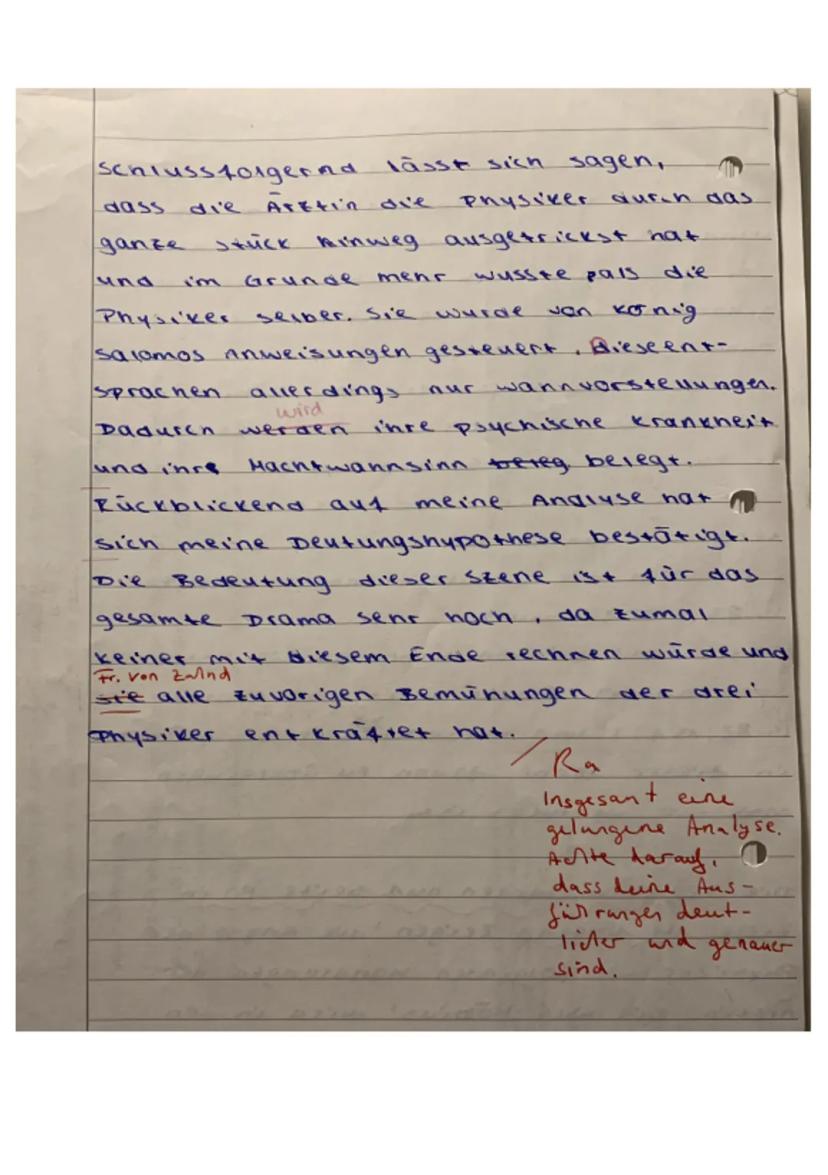 Schlussfolgernd lässt sich sagen,
dass die Ärztin die Physiker durch das
ganze Stück hinweg ausgetrickst hat
und im Grunde mehr wusste als die
Physiker selber. Sie wurde von König
Salomos Anweisungen gesteuert. Diese ent-
sprachen allerdings nur wahnvorstellungen.
wird
Dadurch werden ihre psychische Krankheit
und ihre Machtwahnsinn beleg belegt.
Rückblickend auf meine Analyse hat
sich meine Deutungshypothese bestätigt.
Die Bedeutung dieser Szene ist für das
gesamte Drama sehr hoch, da zumal
keiner mit diesem Ende rechnen würde und
Fr. von Zahnd
sie alle zuvorigen Bemühungen der drei
Physiker entkräftet hat.
Ra
Insgesamt eine
gelungene Analyse.
Achte darauf,
dass deine Aus-
führungen deut-
licher und genauer
sind.